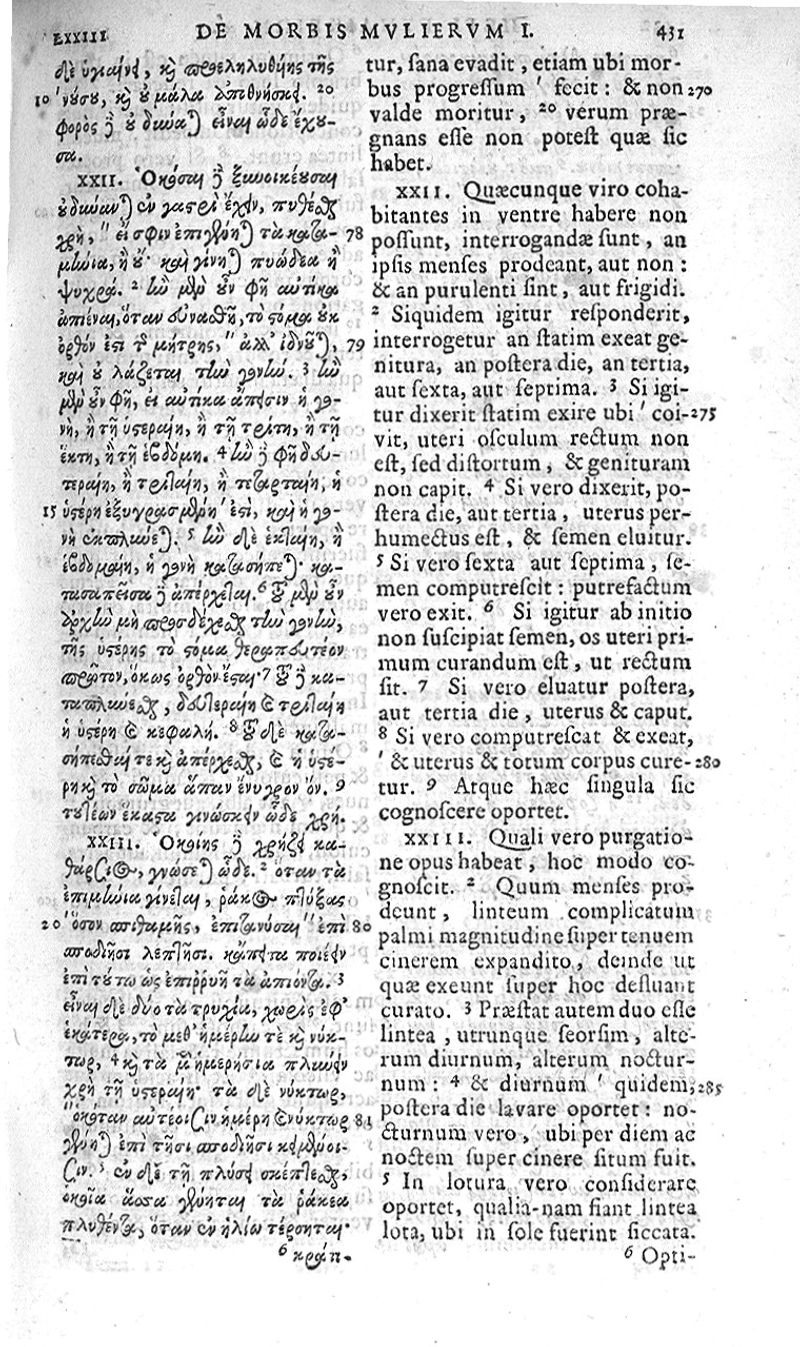 LXXIII DE MORBIS MVLIERVM I. 431
δὲ ὑγιαίνει, καὶ προεληλυθυίης τῆς
10 'νούσου, καὶ οὐ μάλα ἀποθνήσκει. 20
φορὸς δὲ οὐ δύναται εἶναι ὧδε ἔχου-
σα.
XXII. Ὁκόσαι δὲ ξυνοικέουσαι
οὐ δύνανται ἐν γαστρὶ ἔχειν, πυθέσθαι
χρὴ, " εἴ σφιν ἐπιγίνηται τὰ κατα- 78
μήνια, ἢ οὔ· καὶ γίνηται πυώδεα ἢ
ψυχρά. 2 ἢν μὲν οὖν φῇ αὐτίκα
ἀπιέναι, ὅταν ξυνευνηθῇ, τὸ στόμα οὐκ
ὀρθόν ἐστι τῶν μητρῃς, " ἀλλ' ἰδνοῦται, 79
καὶ οὐ λάζεται τὴν γονήν. 3 ἢν
μὲν οὖν φῇ, εἰ αὐτίκα ἄπεισιν ἡ γο-
νὴ, ἢ τῇ ὑστεραίῃ, ἢ τῇ τρίτῃ, ἢ τῇ
ἕκτῃ, ἢ τῇ ἑβδόμῃ. 4 ἢν δὲ φῇ δευ-
τεραίη, ἢ τριταίη, ἢ τεταρταίη, ἡ
15 ὑστέρη ἐξυγρασμένη ' ἐστὶ, καὶ ἡ γο-
νὴ ἐκπλύνεται. 5 ἢν δὲ ἑκταίη, ἢ
ἑβδομαίη, ἡ γονὴ κατασήπεται· κα-
τασαπεῖσα δὲ ἀπέρχεται. 6 τοῦ μὲν οὖν
ἀρχὴν μὴ προσδέχεσθαι τὴν γονὴν,
τῆς ὑστέρης τὸ στόμα θεραπευτέον
πρῶτον, ὅκως ὀρθὸν ἔσται· 7 τοῦ δὲ κα-
ταπλύνεσθαι, δευτεραίῃ καὶ τριταίῃ
ἡ ὑστέρη καὶ κεφαλή. 8 τοῦ δὲ κατα-
σήπεσθαί τε καὶ ἀπέρχεσθαι, καὶ ἡ ὑστέ-
ρη καὶ τὸ σῶμα ἅπαν ἔνυγρον ὄν. 9
τουτέων ἕκαστα γινώσκειν ὧδε χρή.
XXIII. Ὁκοίης δὲ χρῄζει κα-
θάρσιος, γνώσεται ὧδε. 2 ὅταν τὰ
ἐπιμήνια γίνεται, ῥάκος πτύξας
20 ' ὅσον σπιθαμῆς, ἐπιτανύσαι " ἐπὶ 80
σποδιῆσι λεπτῇσι. κἄπειτα ποιέειν
ἐπὶ τούτῳ ὡς ἐπιῤῥυῇ τὰ ἀπιόντα. 3
εἶναι δὲ δύο τὰ τρυχία, χωρὶς ἐφ'
ἑκάτερα, τὸ μεθ' ἡμέρην τε καὶ νύκ-
τωρ, 4 καὶ τὰ μὲν ἡμερήσια πλύνειν
χρὴ τῇ ὑστεραίῃ· τὰ δὲ νύκτωρ,
" ὁκόταν αὐτέοισιν ἡμέρη καὶ νύκτωρ 81
γένηται ἐπὶ τῇσι σποδιῇσι κειμένοι-
σιν. 5 ἐν δὲ τῇ πλύσει σκέπτεσθαι,
ὁκοῖα ἄσσα γίνηται τὰ ῥάκεα
πλυθέντα, ὅταν ἐν ἡλίῳ τέρσηται·
6 κράτι-
tur, sana evadit, etiam ubi mor-
bus progressum ' fecit: & non 270
valde moritur, 20 verum præ-
gnans esse non potest quæ sic
habet.
XXII. Quæcunque viro coha-
bitantes in ventre habere non
possunt, interrogandæ sunt, an
ipsis menses prodeant, aut non:
& an purulenti sint, aut frigidi.
2 Siquidem igitur responderit,
interrogetur an statim exeat ge-
nitura, an postera die, an tertia,
aut sexta, aut septima. 3 Si igi-
tur dixerit statim exire ubi ' coi- 275
vit, uteri osculum rectum non
est, sed distortum, & genituram
non capit. 4 Si vero dixerit, po-
stera die, aut tertia, uterus per-
humectus est, & semen eluitur.
5 Si vero sexta aut septima, se-
men computrescit: putrefactum
vero exit. 6 Si igitur ab initio
non suscipiat semen, os uteri pri-
mum curandum est, ut rectum
sit. 7 Si vero eluatur postera,
aut tertia die, uterus & caput.
8 Si vero computrescat & exeat,
' & uterus & totum corpus cure- 280
tur. 9 Atque hæc singula sic
cognoscere oportet.
XXIII. Quali vero purgatio-
ne opus habeat, hoc modo co-
gnoscit. 2 Quum menses pro-
deunt, linteum complicatum
palmi magnitudine super tenuem
cinerem expandito, deinde ut
quæ exeunt super hoc defluant
curato. 3 Præstat autem duo esse
lintea, utrunque seorsim, alte-
rum diurnum, alterum noctur-
num: 4 & diurnum ' quidem, 285
postera die lavare oportet: no-
cturnum vero, ubi per diem ac
noctem super cinere situm fuit.
5 In lotura vero considerare
oportet, qualia-nam fiant lintea
lota, ubi in sole fuerint siccata.
6 Opti-